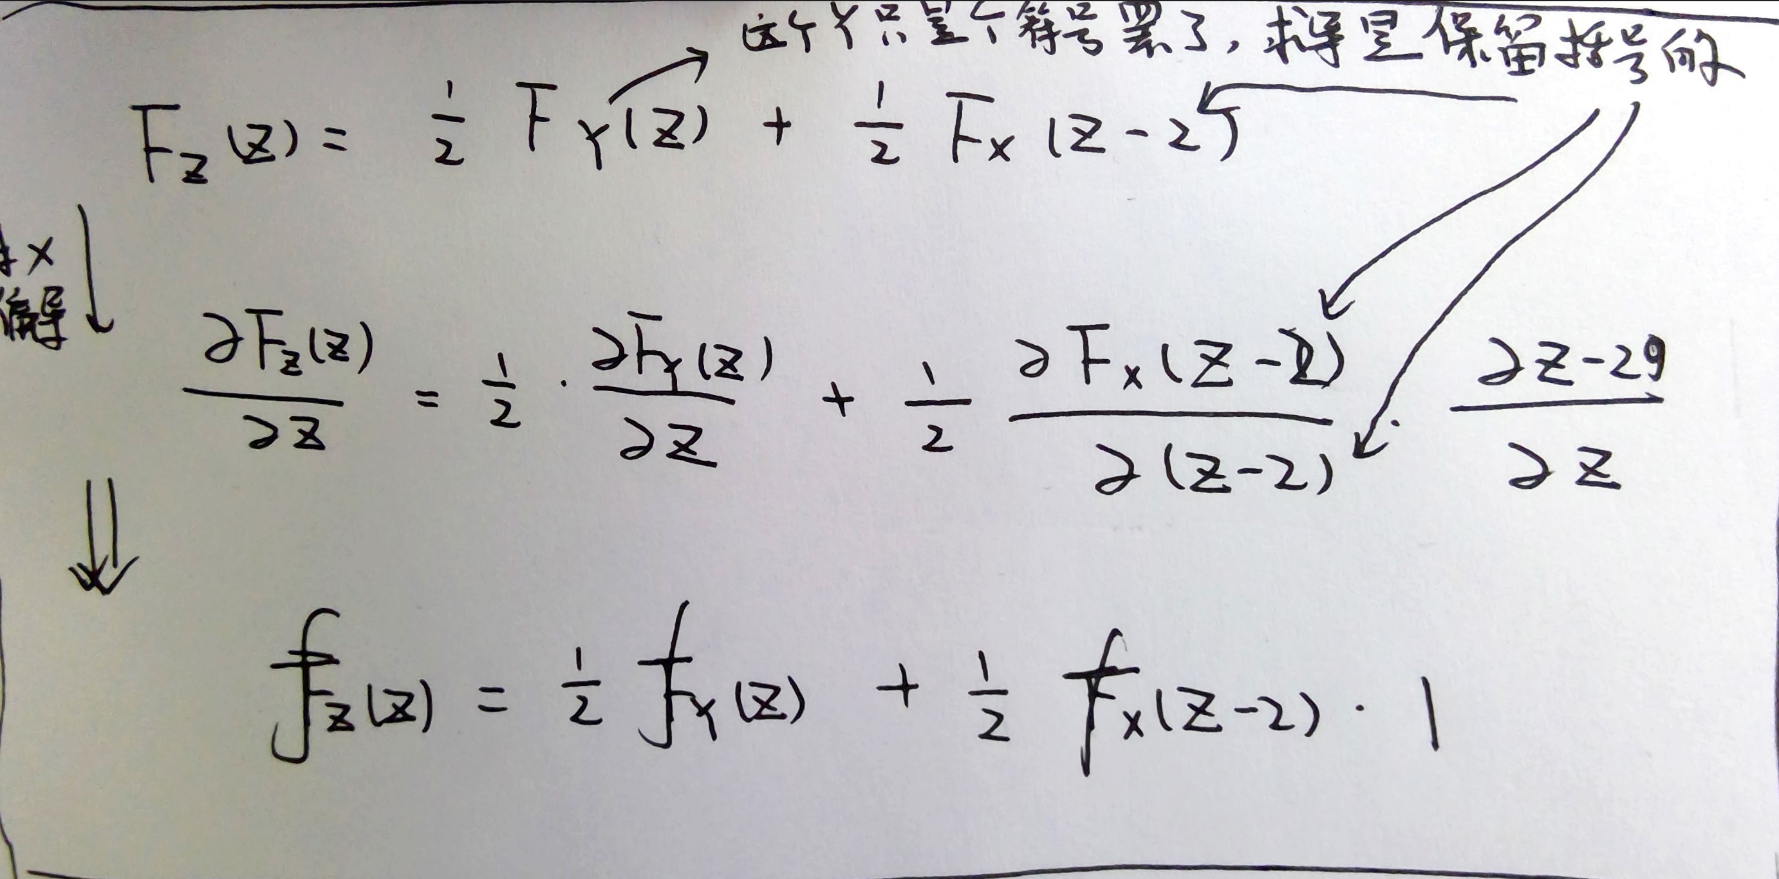 这个Y只是个符号罢了,求导是保留括号的
F_Z(Z) = 1/2 F_Y(Z) + 1/2 F_X(Z-2)
X
偏导
∂F_Z(Z)/∂Z = 1/2 · ∂F_Y(Z)/∂Z + 1/2 ∂F_X(Z-2)/∂(Z-2) · ∂Z-2/∂Z
⇓
f_Z(Z) = 1/2 f_Y(Z) + 1/2 f_X(Z-2) · 1